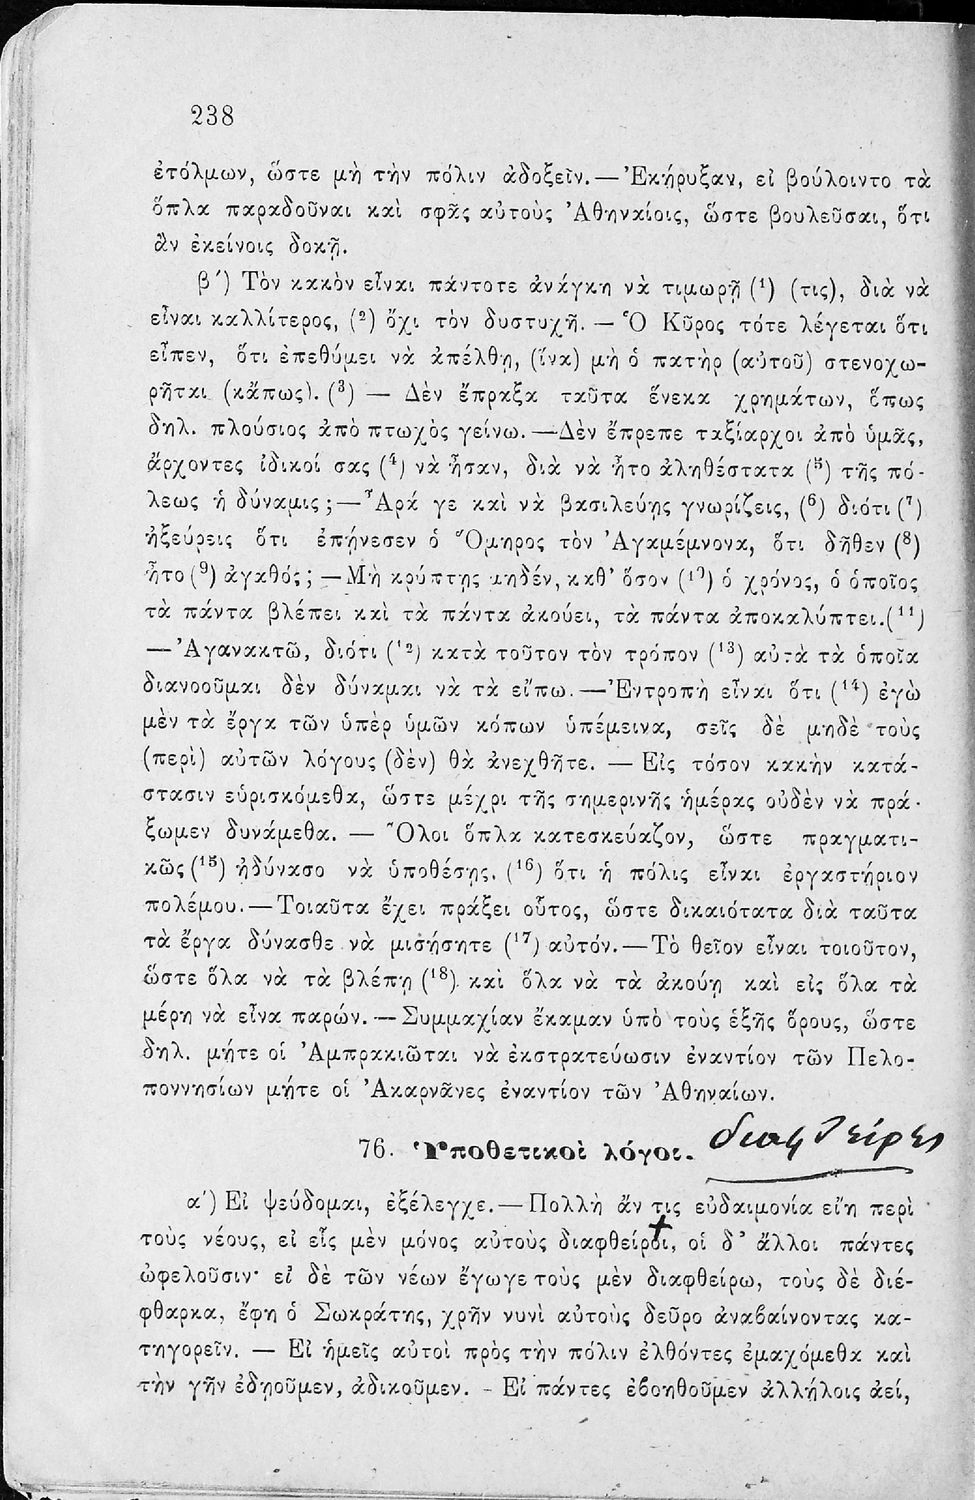 238
ἐτόλμων, ὥστε μὴ τὴν πόλιν ἀδοξεῖν. — Ἐκήρυξαν, εἰ βούλοιντο τὰ
ὅπλα παραδοῦναι καὶ σφᾶς αὐτοὺς Ἀθηναίοις, ὥστε βουλεῦσαι, ὅτι
ἂν ἐκείνοις δοκῇ.
β΄) Τὸν κακὸν εἶναι πάντοτε ἀνάγκη νὰ τιμωρῇ (¹) (τις), διὰ νὰ
εἶναι καλλίτερος, (²) ὄχι τὸν δυστυχῆ. — Ὁ Κῦρος τότε λέγεται ὅτι
εἶπεν, ὅτι ἐπεθύμει νὰ ἀπέλθῃ, (ἵνα) μὴ ὁ πατὴρ (αὑτοῦ) στενοχω-
ρῆται (κἄπως). (³) — Δὲν ἔπραξα ταῦτα ἕνεκα χρημάτων, ὅπως
δηλ. πλούσιος ἀπὸ πτωχὸς γείνω. — Δὲν ἔπρεπε ταξίαρχοι ἀπὸ ὑμᾶς,
ἄρχοντες ἰδικοί σας (⁴) νὰ ἦσαν, διὰ νὰ ἦτο ἀληθέστατα (⁵) τῆς πό-
λεως ἡ δύναμις; — Ἆρά γε καὶ νὰ βασιλεύῃς γνωρίζεις, (⁶) διότι (⁷)
ἠξεύρεις ὅτι ἐπῄνεσεν ὁ Ὅμηρος τὸν Ἀγαμέμνονα, ὅτι δῆθεν (⁸)
ἦτο (⁹) ἀγαθός; — Μὴ κρύπτῃς μηδέν, καθ' ὅσον (¹⁰) ὁ χρόνος, ὁ ὁποῖος
τὰ πάντα βλέπει καὶ τὰ πάντα ἀκούει, τὰ πάντα ἀποκαλύπτει. (¹¹)
— Ἀγανακτῶ, διότι (¹²) κατὰ τοῦτον τὸν τρόπον (¹³) αὐτὰ τὰ ὁποῖα
διανοοῦμαι δὲν δύναμαι νὰ τὰ εἴπω. — Ἐντροπὴ εἶναι ὅτι (¹⁴) ἐγὼ
μὲν τὰ ἔργα τῶν ὑπὲρ ὑμῶν κόπων ὑπέμεινα, σεῖς δὲ μηδὲ τοὺς
(περὶ) αὐτῶν λόγους (δὲν) θὰ ἀνεχθῆτε. — Εἰς τόσον κακὴν κατά-
στασιν εὑρισκόμεθα, ὥστε μέχρι τῆς σημερινῆς ἡμέρας οὐδὲν νὰ πρά-
ξωμεν δυνάμεθα. — Ὅλοι ὅπλα κατεσκεύαζον, ὥστε πραγματι-
κῶς (¹⁵) ἠδύνασο νὰ ὑποθέσῃς. (¹⁶) ὅτι ἡ πόλις εἶναι ἐργαστήριον
πολέμου. — Τοιαῦτα ἔχει πράξει οὗτος, ὥστε δικαιότατα διὰ ταῦτα
τὰ ἔργα δύνασθε νὰ μισήσητε (¹⁷) αὐτόν. — Τὸ θεῖον εἶναι τοιοῦτον,
ὥστε ὅλα νὰ τὰ βλέπῃ (¹⁸) καὶ ὅλα νὰ τὰ ἀκούῃ καὶ εἰς ὅλα τὰ
μέρη νὰ εἶνα παρών. — Συμμαχίαν ἔκαμαν ὑπὸ τοὺς ἑξῆς ὅρους, ὥστε
δηλ. μήτε οἱ Ἀμπρακιῶται νὰ ἐκστρατεύωσιν ἐναντίον τῶν Πελο-
ποννησίων μήτε οἱ Ἀκαρνᾶνες ἐναντίον τῶν Ἀθηναίων.
76. Ὑποθετικοὶ λόγοι.
α΄) Εἰ ψεύδομαι, ἐξέλεγχε. — Πολλὴ ἄν τις εὐδαιμονία εἴη περὶ
τοὺς νέους, εἰ εἷς μὲν μόνος αὐτοὺς διαφθείροι, οἱ δ' ἄλλοι πάντες
ὠφελοῦσιν· εἰ δὲ τῶν νέων ἔγωγε τοὺς μὲν διαφθείρω, τοὺς δὲ διέ-
φθαρκα, ἔφη ὁ Σωκράτης, χρῆν νυνὶ αὐτοὺς δεῦρο ἀναβαίνοντας κα-
τηγορεῖν. — Εἰ ἡμεῖς αὐτοὶ πρὸς τὴν πόλιν ἐλθόντες ἐμαχόμεθα καὶ
τὴν γῆν ἐδῃοῦμεν, ἀδικοῦμεν. - Εἰ πάντες ἐβοηθοῦμεν ἀλλήλοις ἀεί,